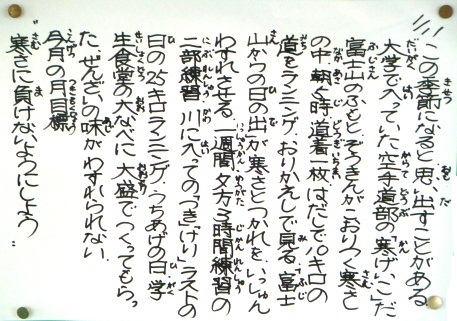 この季節になると思い出すことがある
大学で入っていた空手道部の寒げいこだ
富士山のふもと、ぞうきんがこおりつく寒さ
の中、朝4時、道着一枚はだしで、10キロの
道をランニング、おりかえしで見る富士
山からの日の出が寒さとつかれを、いっしゅん
わすれさせる。一週間夕方3時間練習の
二部練習、川に入っての「つき」「けり」ラストの
日の25キロランニング、うちあげの日、学
生食堂の大なべに大盛でつくってもらっ
た、ぜんざいの味がわすれられない
今月の月目標
"寒さに負けないようにしよう"